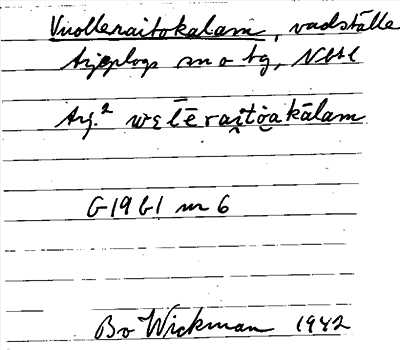 Vuolleraitokalam, vadställe
Arjeplogs sn o tg, Nbtl
Arj.² wɛlērai̯tŏ̭akālam
G1961 nr 6
Bo Wickman 1942